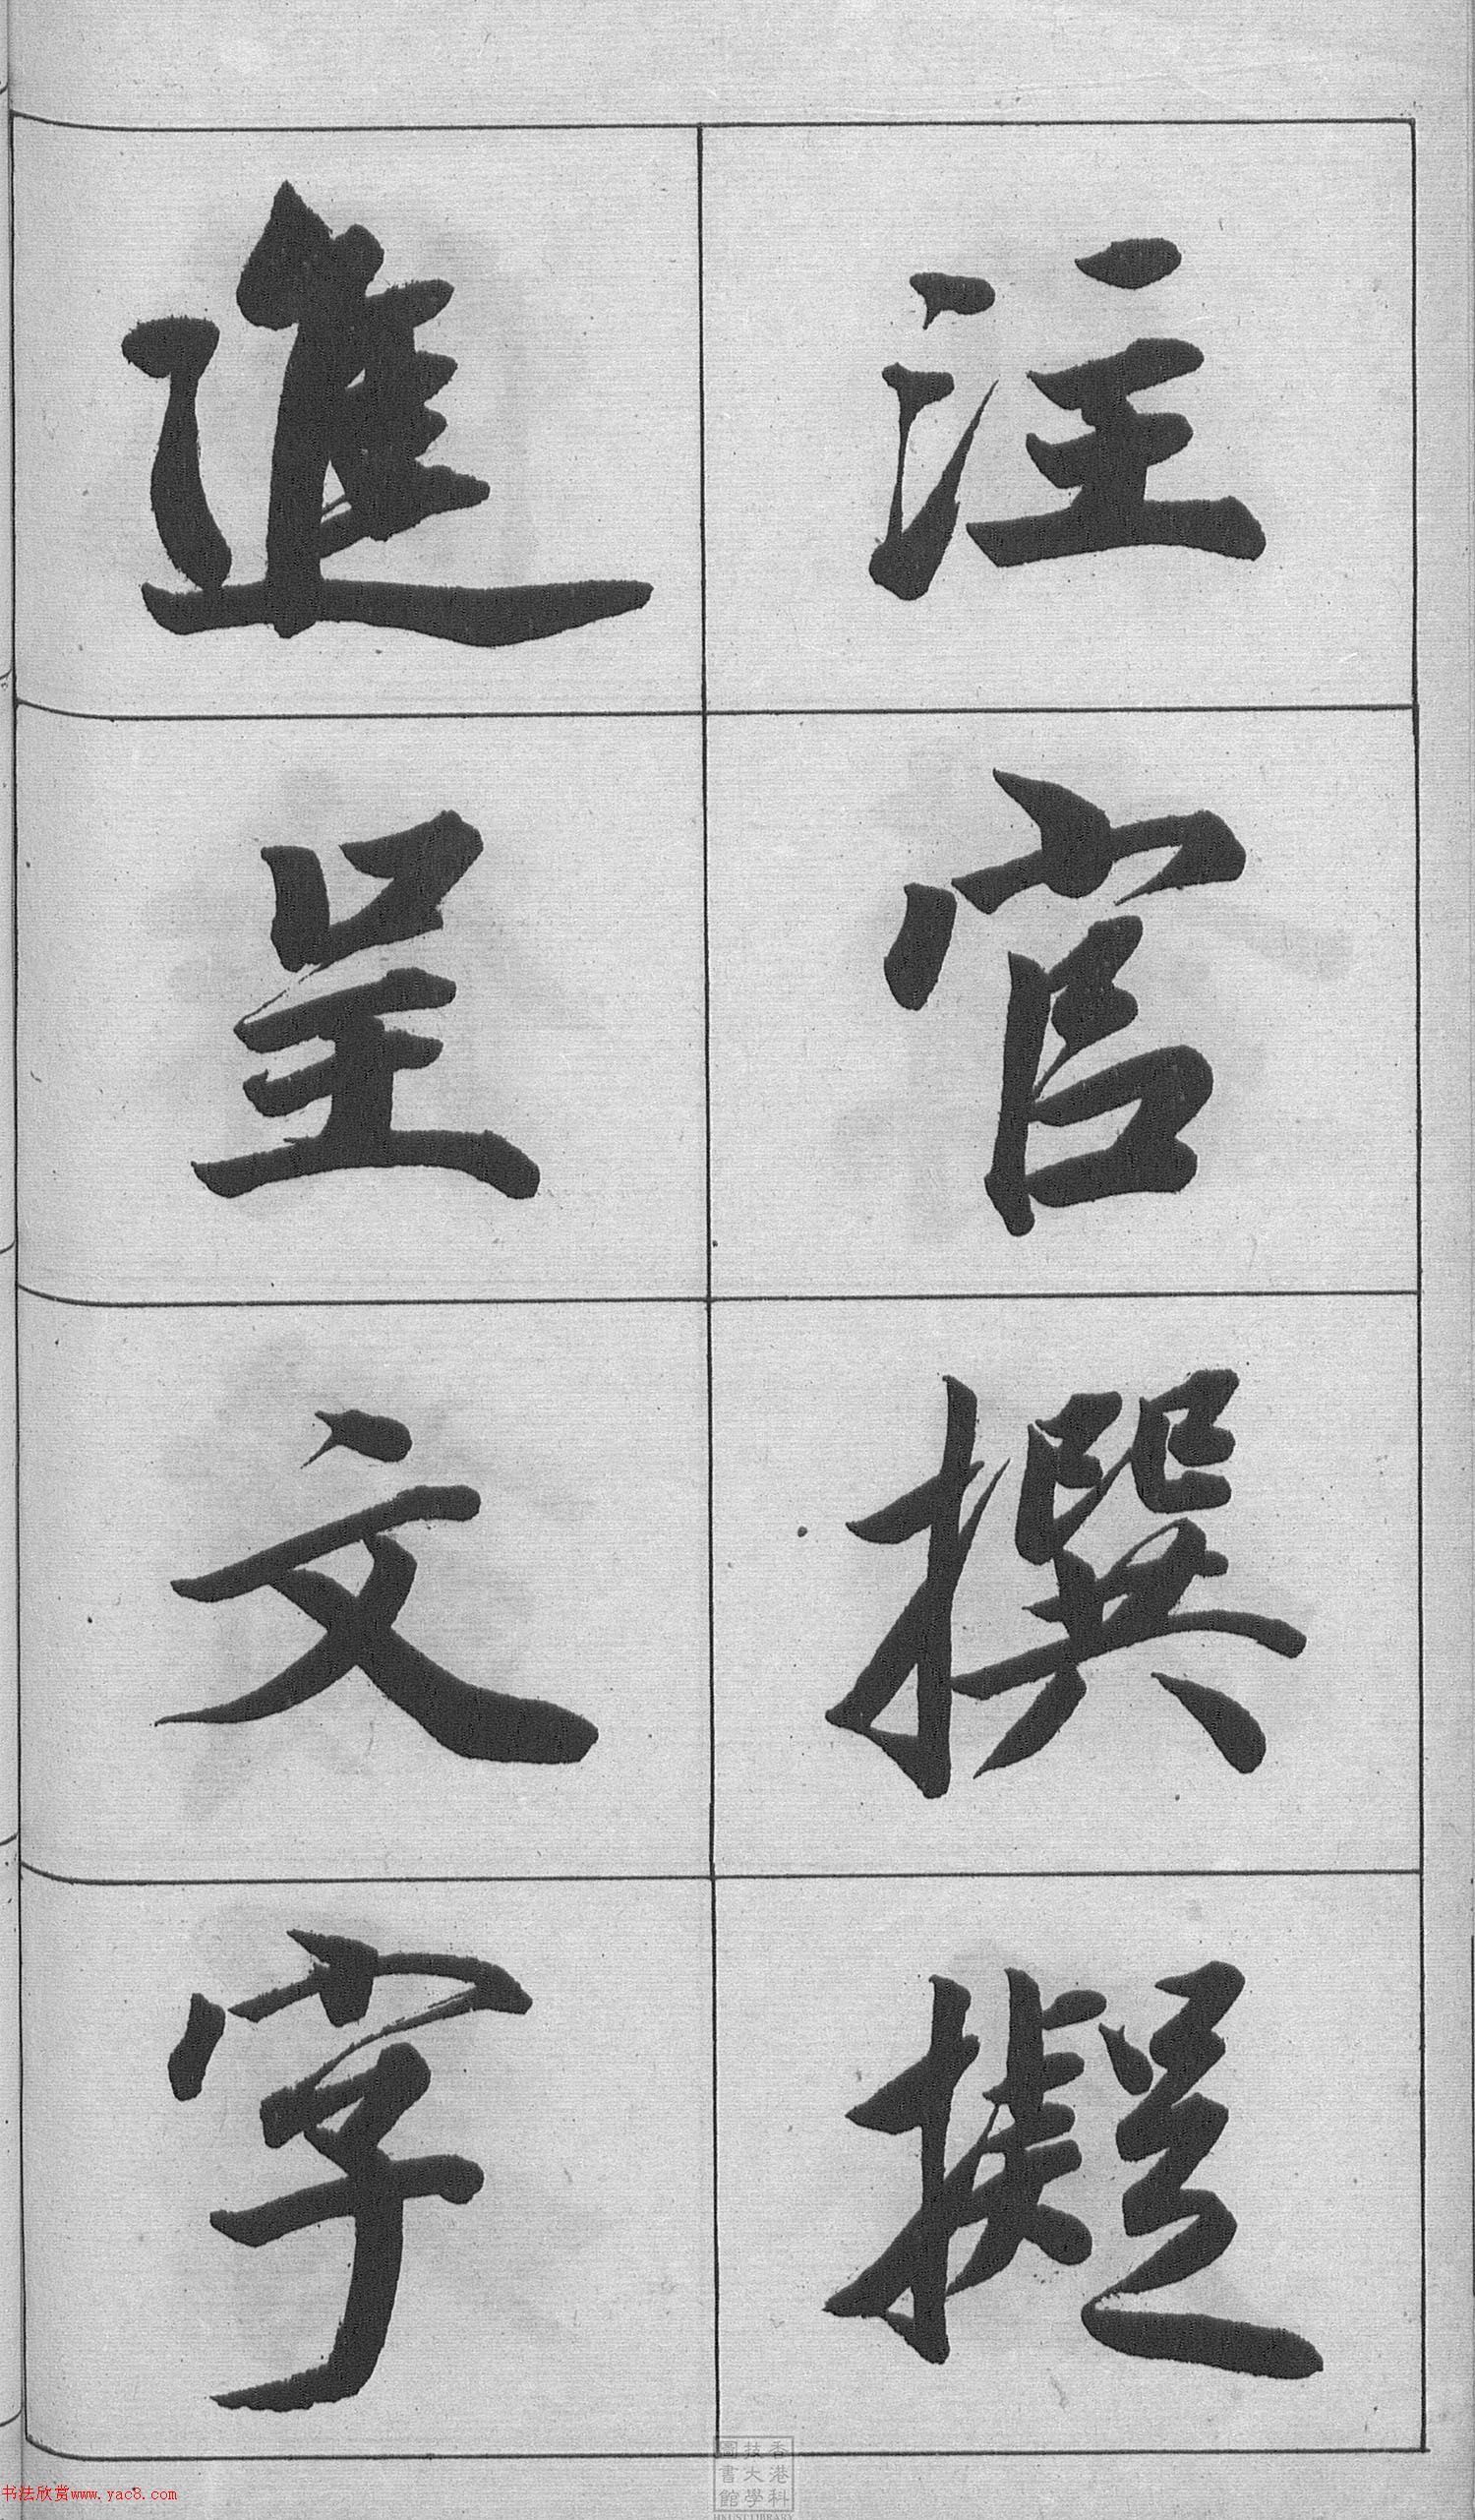 注官撰擬
進呈文字
香港科
技大學
圖書館
HKUST LIBRARY
书法欣赏www.yac8.com